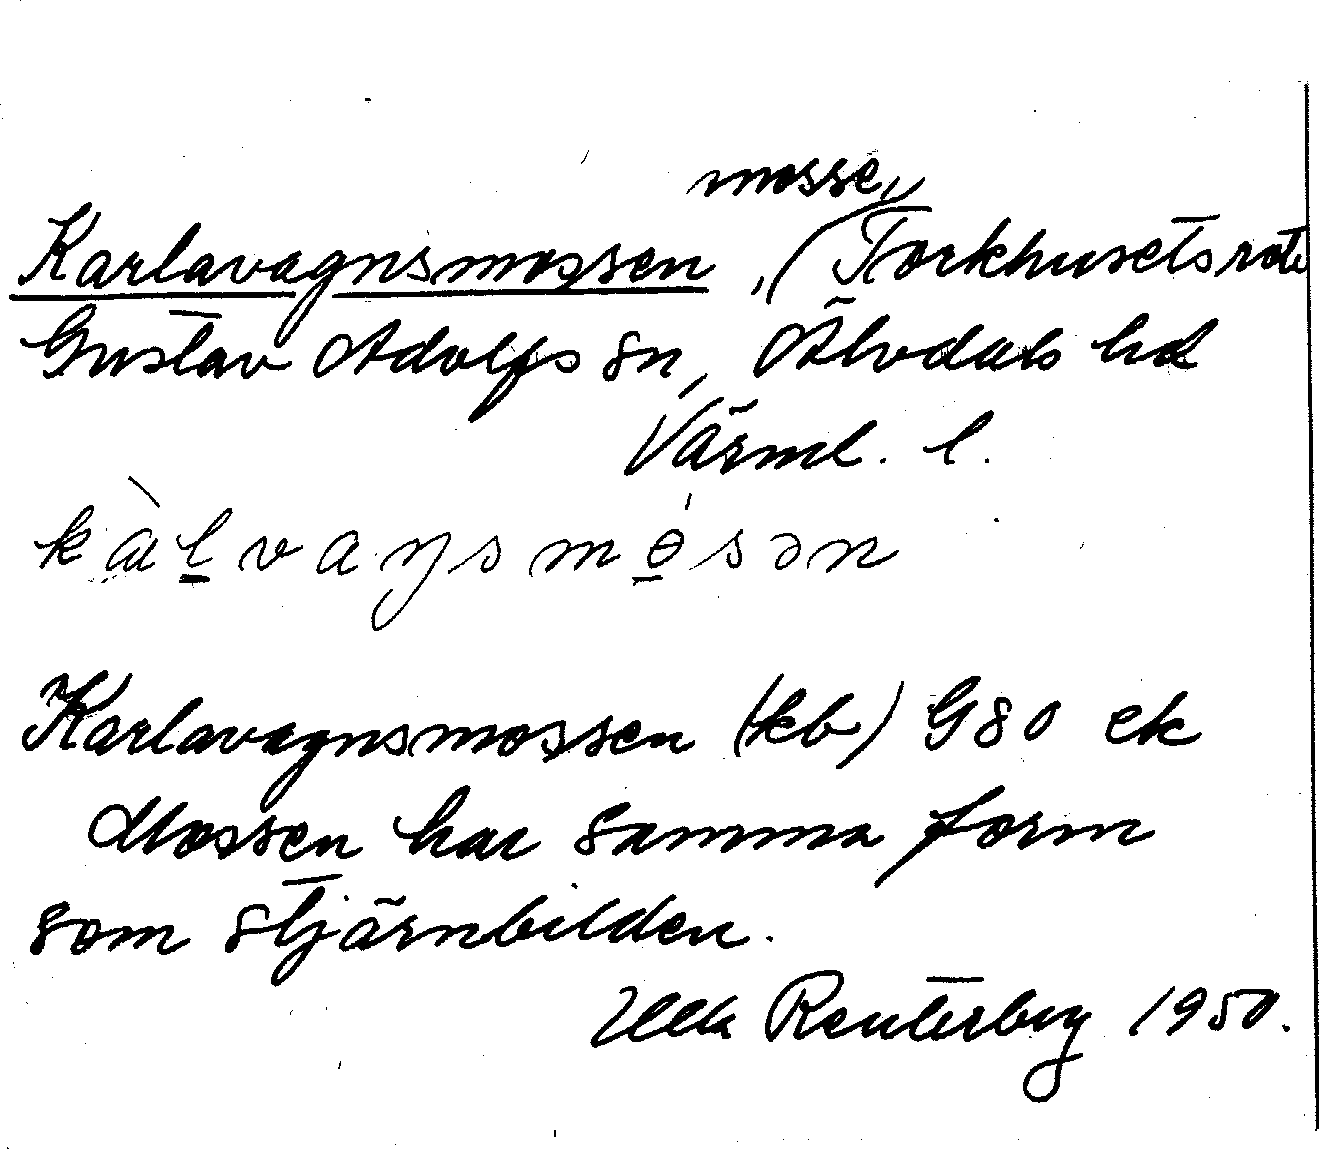 mosse,
Karlavagnsmossen, (Torkhusets rote
Gustav Adolfs sn, Älvdals hd
Värml. l.
kàḷvaŋsmɵ̱́sən
Karlavagnsmossen (kb) G80 ek
Mossen har samma form
som stjärnbilden.
Ulla Reuterberg 1950.